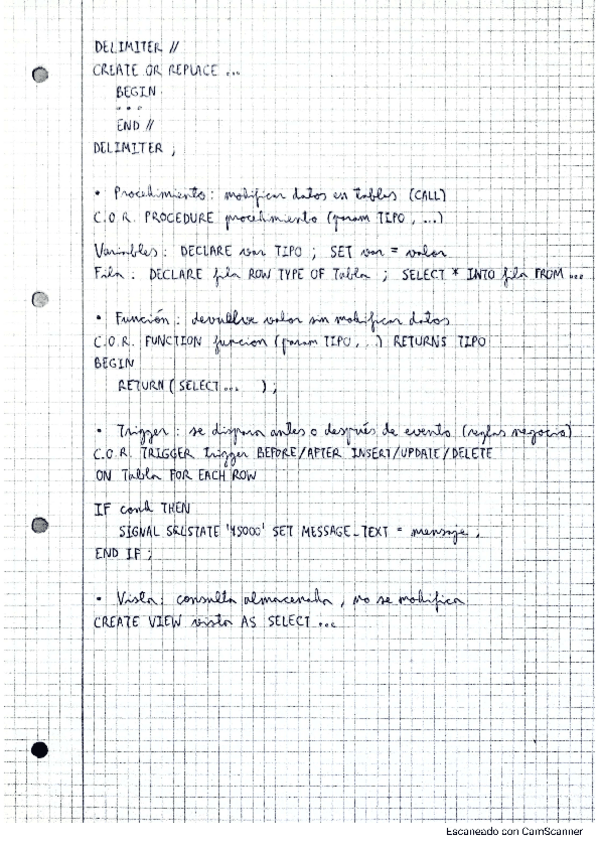 DELIMITER //
CREATE OR REPLACE ...
BEGIN
...
END //
DELIMITER ;
• Procedimiento: modificar datos en tablas (CALL)
C.O.R. PROCEDURE procedimiento (param TIPO, ...)
Variables: DECLARE var TIPO ; SET var = valor
Fila: DECLARE fila ROW TYPE OF Tabla ; SELECT * INTO fila FROM ...
• Función: devuelve valor sin modificar datos
C.O.R. FUNCTION funcion (param TIPO, ..) RETURNS TIPO
BEGIN
RETURN (SELECT ... );
• Trigger: se dispara antes o después de evento (reglas negocio)
C.O.R. TRIGGER trigger BEFORE/AFTER INSERT/UPDATE/DELETE
ON Tabla FOR EACH ROW
IF cond THEN
SIGNAL SQLSTATE '45000' SET MESSAGE_TEXT = mensaje ;
END IF ;
• Vista: consulta almacenada, no se modifica
CREATE VIEW vista AS SELECT ...
Escaneado con CamScanner